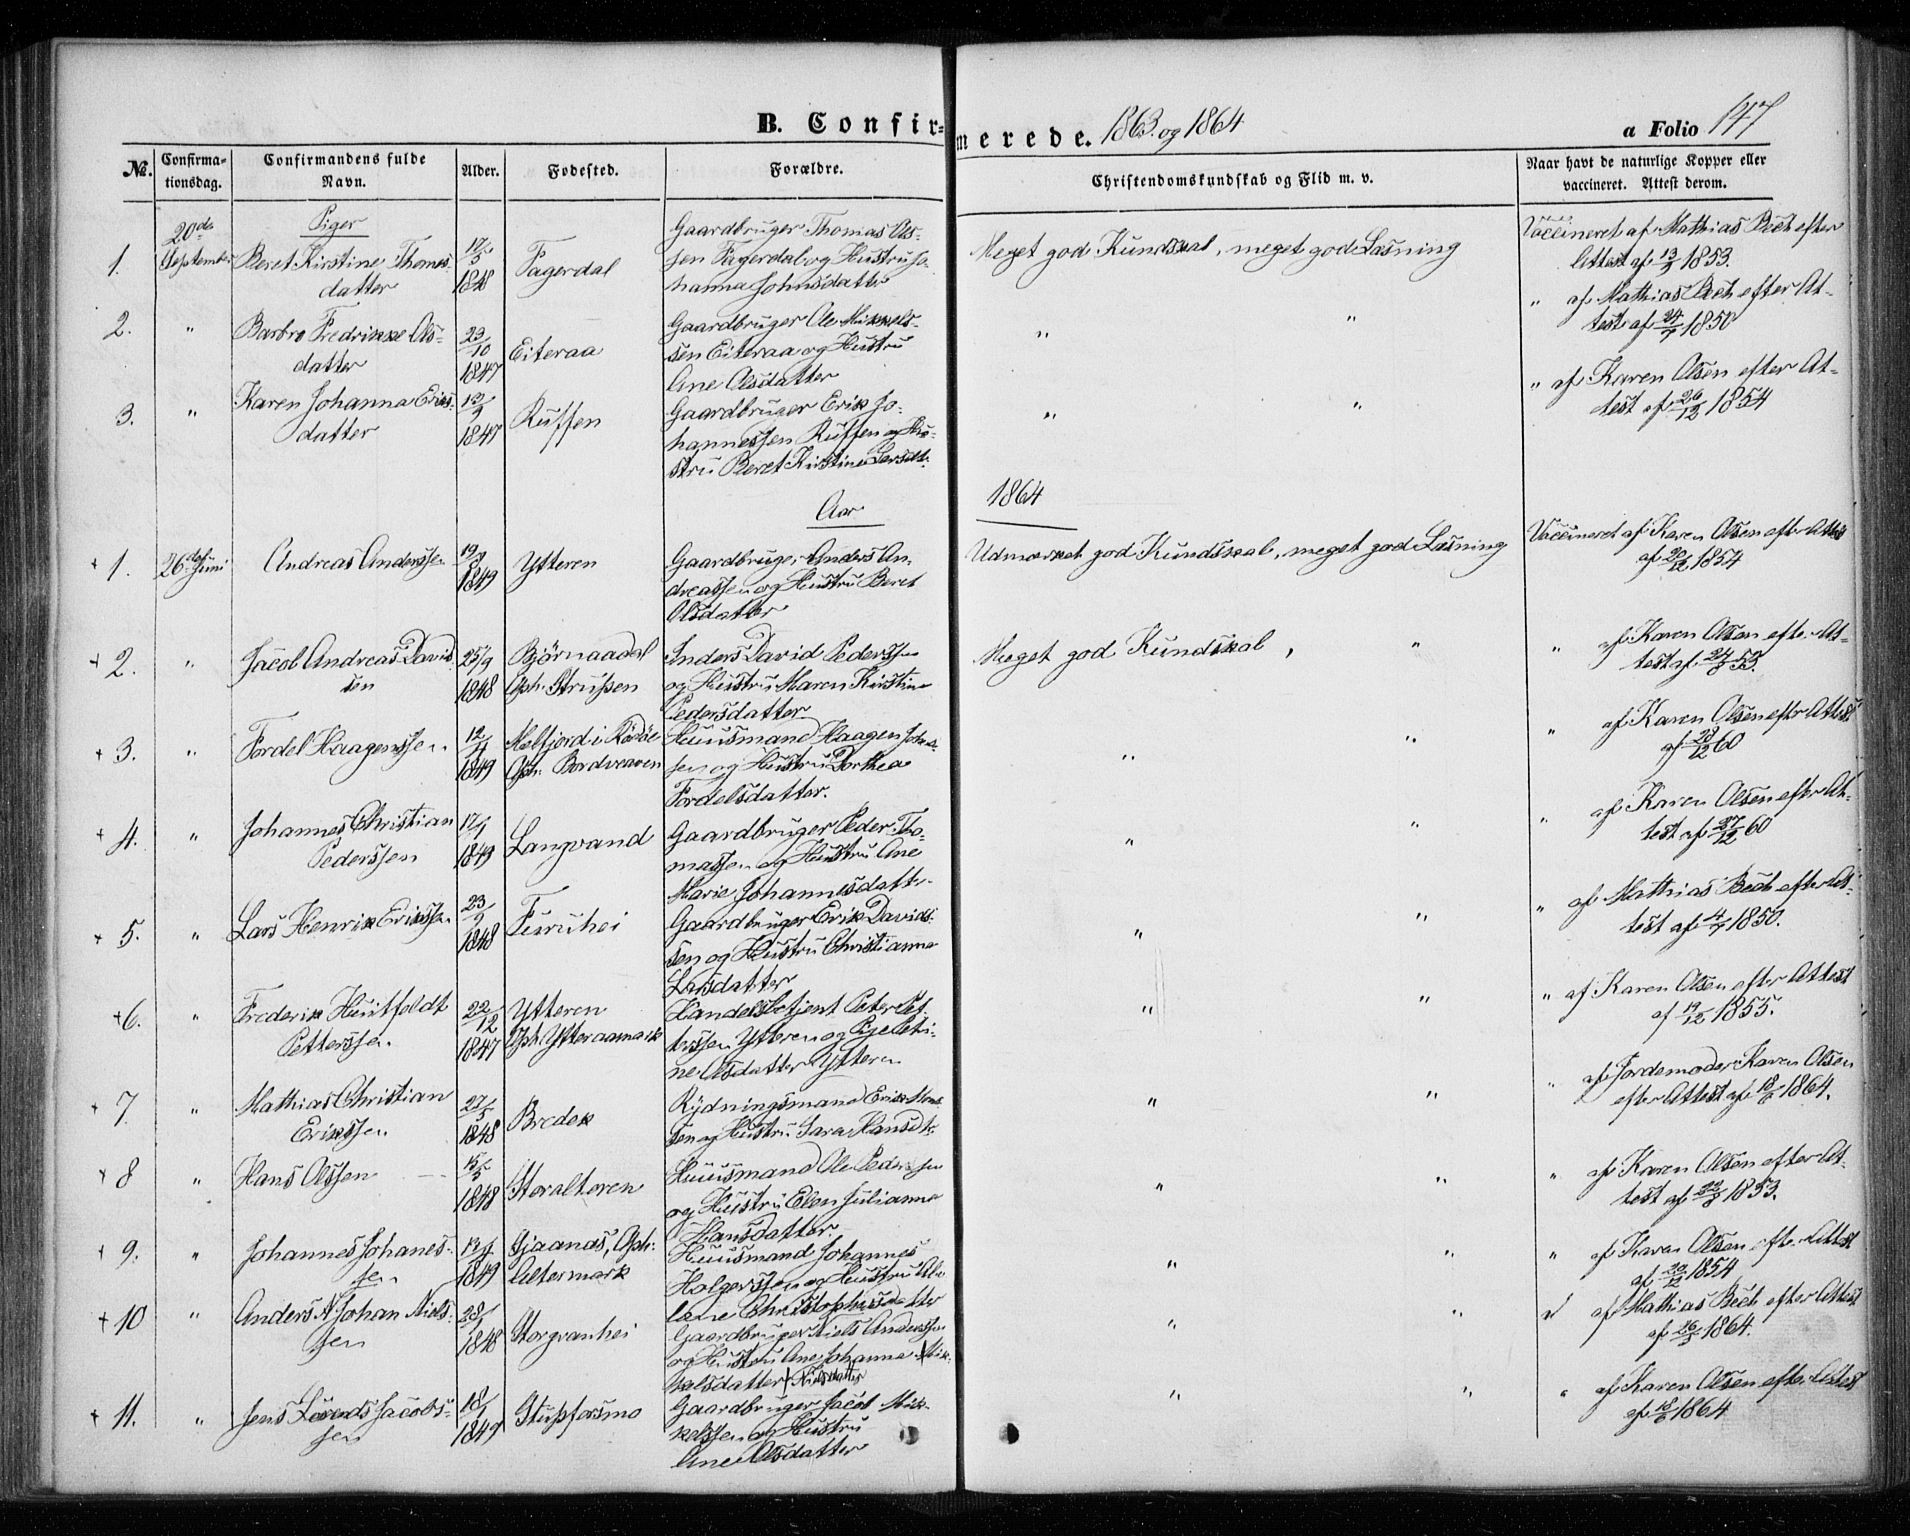 B. Confir=
merede. 1863. og 1864
a Folio 147
No.
Confirma-
tionsdag.
Confirmandens fulde
Navn.
Alder.
Fødested.
Forældre.
Christendomskundskab og Flid m. v.
Naar havt de naturlige Kopper eller
vaccineret. Attest derom.
Piger
1.
20de
September
Beret Kirstine Thomes-
datter
17/5
1848
Fagerdal
Gaardbruger Thomas Ols-
sen Fagerdal og Hustru Jo-
hanna Johnsdatter
Meget god Kundskab, meget god Læsning
Vaccineret af Mathias Bech efter
Attest af 13/9 1853.
2.
"
Barbro Fredrikke Ols-
datter
23/10
1847
Eiteraa
Gaardbruger Ole Mikkels-
sen Eiteraa og Hustru
Ane Olsdatter
" "
" af Mathias Bech efter At-
test af 24/7 1850
3.
"
Karen Johanna Eriks-
datter
13/9
1847
Ruffen
Gaardbruger Erik Jo-
hannessen Ruffen og Hu-
stru Beret Kirstine Larsdtr.
" "
" af Karen Olsen efter At-
test af 26/12 1854
Aar
1864
+ 1.
26de Juni
Andreas Anderssen
19/8
1849
Ytteren
Gaardbruger Anders An-
dreassen og Hustru Beret
Olsdatter
Udmærket god Kundskab, meget god Læsning
Vaccineret af Karen Olsen efter Attest
af 20/12 1854
+ 2.
"
Jacob Andreas David
sen
25/9
1848
Bjørnaadal
Oph. Strussen
Anders David Pederssen
og Hustru Maren Kirstine
Pedersdatter
Meget god Kundskab, "
" af Karen Olsen efter At-
test af 24/8 53.
+ 3.
"
Tordel Haagenssen
12/4
1849
Melfjord i Rødøe
Oph.
Huusmand Haagen
sen og Hustru Dorthea
Tordelsdatter.
" "
" af Karen Olsen eftr Attest
af 28/12 60
+ 4.
"
Johannes Christian
Pederssen
17/1
1849
Langvand
Gaardbruger Peder Tho-
massen og Hustru Ane
Marie Johannesdatter
" "
" af Karen Olsen eftr At-
test af 27/12 60
+ 5.
"
Lars Henrik Erikssen
23/9
1848
Furuhei
Gaardbruger Erik Davids-
sen og Hustru Christianna
Larsdatter
" "
" af Mathias Bech efter At-
test af 4/7 1850.
+6.
"
Frederik Huitfeldt
Petterssen
22/12
1847
Ytteren
Oph. Ytteraamark
Handelsbetjent Peter Pet-
terssen Ytteren og Pige Peti-
ne Olsdatter Ytteren
" "
" af Karen Olsen efter Attest
af 19/12 1855.
+ 7
"
Mathias Christian
Erikssen
27/5
1848
Bredek
Rydningsmand Erik
sen og Hustru Sara Hansdtr.
" "
" af Jordemoder Karen Olsen
efter Attest af 18/6 1864.
+ 8
"
Hans Olssen
15/5
1848
Storalteren
Huusmand Ole Pederssen
og Hustru Elen Julianna
Hansdatter
" "
" af Karen Olsen efter At-
test af 22/8 1853.
+ 9.
"
Johannes Johanes-
sen
1849
Gjaanas, Oph:
Altermark
Huusmand Johannes
Holgerssen og Hustru Abe
lone Christophersdatter
" "
" af Karen Olsen eft. Attest
af 20/12 1854
+ 10
"
Anders N Johan Niels-
sen
28/1
1848
Storgranhei
Gaardbruger Niels Anderssen
og Hustru Ane Johanna Mik-
kelsdatter Nielsdatter
" "
af Mathias Bech efter Attest
af 26/5 1864.
+ 11.
"
Jens Jacobs-
sen
18/1
1849
Stupforsmo
Gaardbruger Jacob Mik-
kelssen og Hustru
Ane Olsdatter
" "
" af Karen Olsen efter Attest
af 18/6 1864